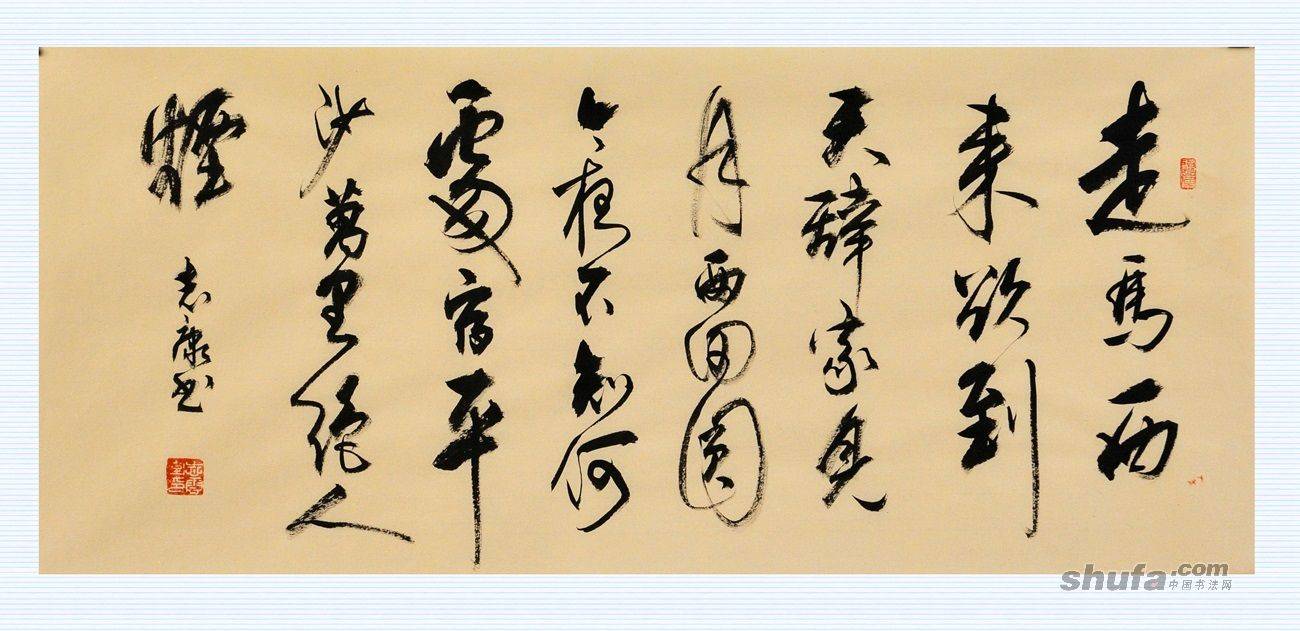 走馬西
来欲到
天辭家見
月两回圓
今夜不知何
處宿平
沙萬里絕人
煙
志康书
shufa.com
中国书法网